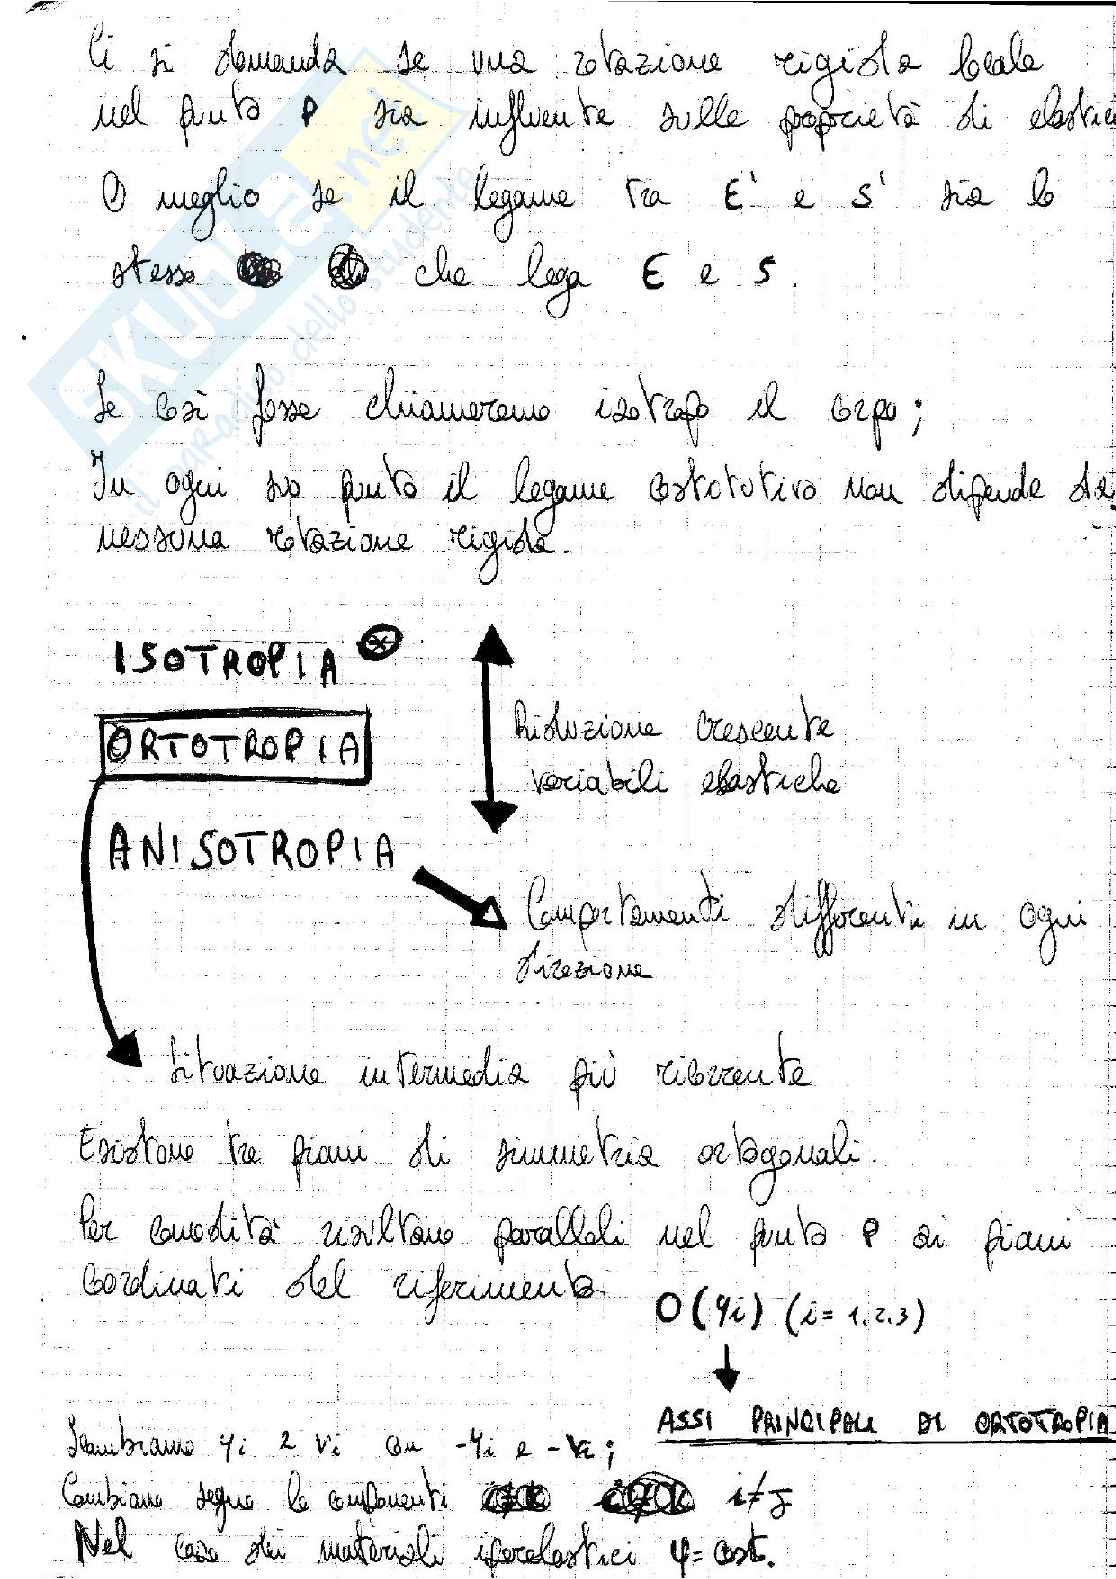 Ci si domanda se una rotazione rigida locale
nel punto P sia influente sulle proprietà di elastici
O meglio se il legame tra E' e S' sia lo
stesso che lega E e S.
Se così fosse chiameremo isotropo il corpo;
In ogni suo punto il legame costitutivo non dipende da
nessuna rotazione rigida.
ISOTROPIA *
ORTOTROPIA
Riduzione crescente
variabili elastiche
ANISOTROPIA
Comportamenti differenti in ogni
direzione
Situazione intermedia più ricorrente
Esistono tre piani di simmetria ortogonali.
Per comodità risultano paralleli nel punto P ai piani
coordinati del riferimento.
O(yi) (i=1,2,3)
ASSI PRINCIPALI DI ORTOTROPIA
Scambiamo yi e vi con -yi e -vi;
Cambiano segno le componenti i≠j
Nel caso dei materiali iperelastici φ=cost.
SKUOLA.net
il paradiso dello studente